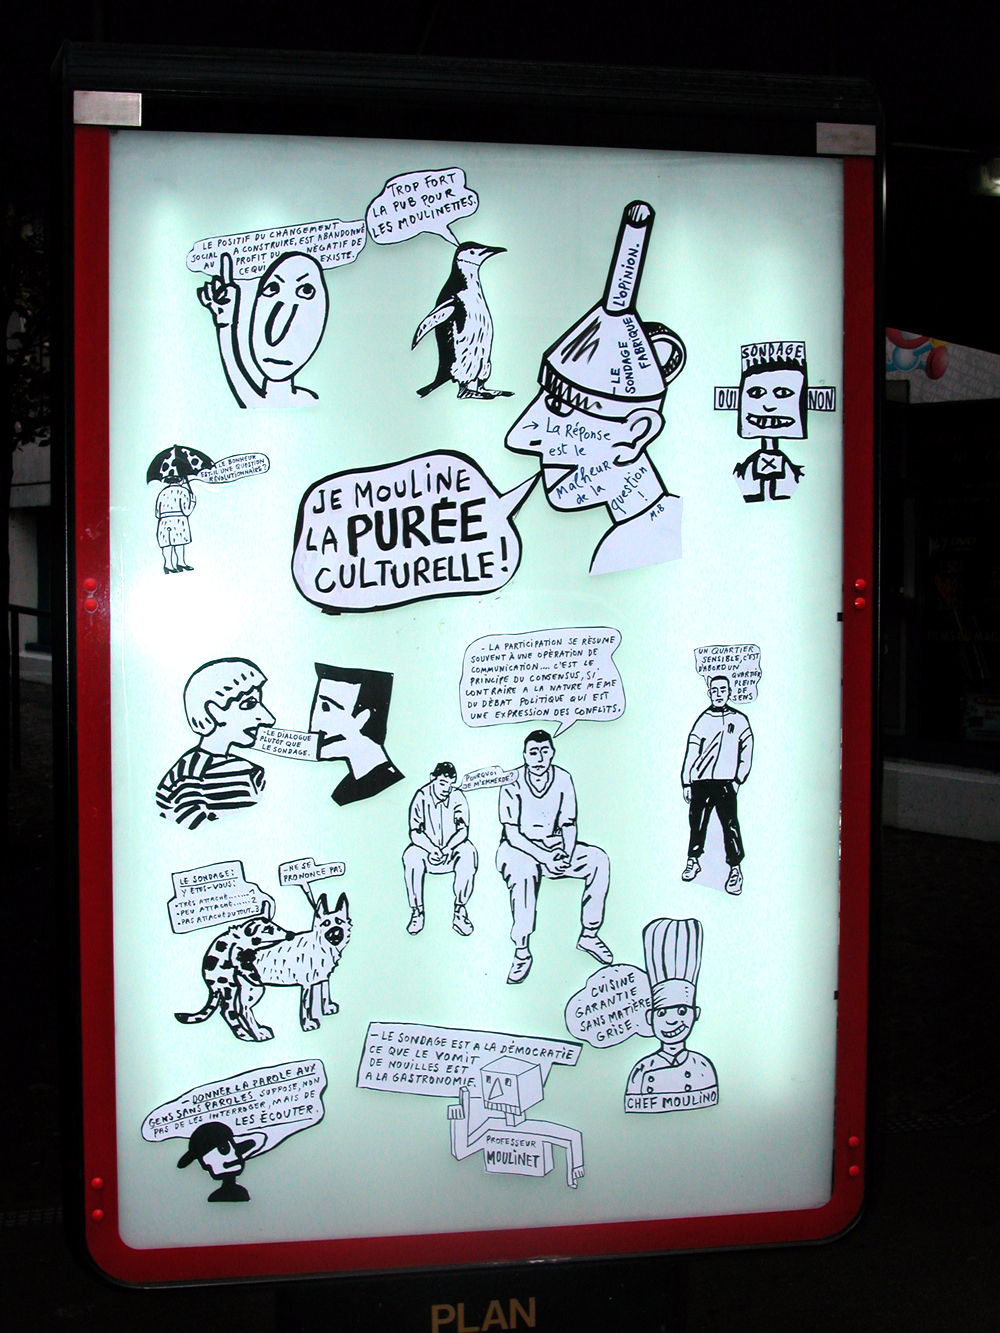 TROP FORT
LA PUB POUR
LES MOULINETTES.
LE POSITIF DU CHANGEMENT
SOCIAL A CONSTRUIRE, EST ABANDONNÉ
AU PROFIT DU NÉGATIF DE
CE QUI EXISTE.
L'OPINION.
-LE
SONDAGE
FABRIQUE
→ LA RÉPONSE
est le
malheur
de la
question
!
M.B
SONDAGE
OUI
NON
LE BONHEUR
EST-IL UNE QUESTION
RÉVOLUTIONNAIRE?
JE MOULINE
LA PURÉE
CULTURELLE!
- LA PARTICIPATION SE RÉSUME
SOUVENT À UNE OPÉRATION DE
COMMUNICATION.... C'EST LE
PRINCIPE DU CONSENSUS, SI
CONTRAIRE A LA NATURE MÊME
DU DÉBAT POLITIQUE QUI EST
UNE EXPRESSION DES CONFLITS.
UN QUARTIER
SENSIBLE, C'EST
D'ABORD UN
QUARTIER
PLEIN
DE
SENS
-LE DIALOGUE
PLUTÔT QUE
LE SONDAGE.
POURQUOI
JE M'EMMERDE?
LE SONDAGE:
Y ÊTES-VOUS:
-TRÈS ATTACHÉ.......1
-PEU ATTACHÉ.......2
-PAS ATTACHÉ DU TOUT..3
-NE SE
PRONONCE PAS
CUISINE
GARANTIE
SANS MATIÈRE
GRISE.
CHEF MOULINO
-LE SONDAGE EST A LA DÉMOCRATIE
CE QUE LE VOMIT
DE NOUILLES EST
A LA GASTRONOMIE.
PROFESSEUR
MOULINET
- DONNER LA PAROLE AUX
GENS SANS PAROLES SUPPOSE, NON
PAS DE LES INTERROGER, MAIS DE
LES ÉCOUTER.
PLAN